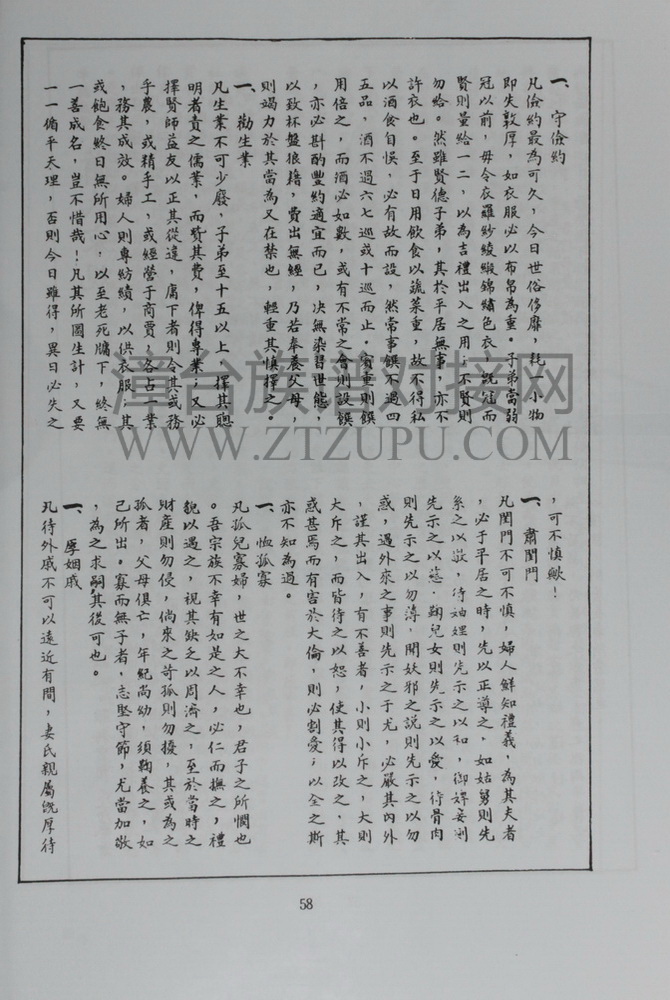 一、守儉約
凡儉約最為可久，今日世俗侈靡，耗一小物
即失敦厚，如衣服必以布帛為重。子弟當弱
冠以前，毋令衣羅紗綾緞錦繡色衣，既冠而
賢則量給一二，以為吉禮出入之用；不賢則
勿給。然雖賢德子弟，其於平居無事，亦不
許衣也。至于日用飲食以蔬菜重，故不得私
以酒食自悞，必有故而設，然常事饌不過四
五品，酒不過六七巡或十巡而止。賓重則饌
用倍之，而酒必如數，或有不常之會則設饌
，亦必斟酌豐約適宜而已，決無染習世態，
以致杯盤狼藉，費出無經，乃若奉養父母，
則竭力於其當為又在禁也，輕重其慎擇之。
一、勸生業
凡生業不可少廢，子弟至十五以上，擇其聰
明者責之儒業，而資其費，俾得專業；又必
擇賢師益友以正其從違，庸下者則令其或務
乎農，或精手工，或經營于商賈，各占一業
，務其成效。婦人則專紡績，以供衣服。其
或飽食終日無所用心，以至老死牖下，終無
一善成名，豈不惜哉！凡其所圖生計，又要
一一循乎天理，否則今日雖得，異日必失之
，可不慎歟！
一、肅閨門
凡閨門不可不慎，婦人鮮知禮義，為其夫者
，必于平居之時，先以正導之，如姑舅則先
示之以敬，待妯娌則先示之以和，御婢妾則
先示之以慈，鞠兒女則先示之以愛，待骨肉
則先示之以勿薄，聞妖邪之說則先示之以勿
惑，遇外來之事則先示之于尤，必嚴其內外
，謹其出入，有不善者，小則小斥之，大則
大斥之，而皆待之以恕，使其得以改之，其
或甚焉而有害於大倫，則必割愛；以全之斯
亦不知為過。
一、恤孤寡
凡孤兒寡婦，世之大不幸也，君子之所憫也
。吾宗族不幸有如是之人，必仁而撫之，禮
貌以遇之，視其缺乏以周濟之，至於當時之
財產則勿侵，倘來之苛孤則勿擾，其或為之
孤者，父母俱亡，年紀尚幼，須鞠養之，如
己所出。寡而無子者，志堅守節，尤當加敬
，為之求嗣其後可也。
一、厚姻戚
凡待外戚不可以遠近有間，妻氏親屬既厚待
58
澶台族谱对接网
WWW.ZTZUPU.COM